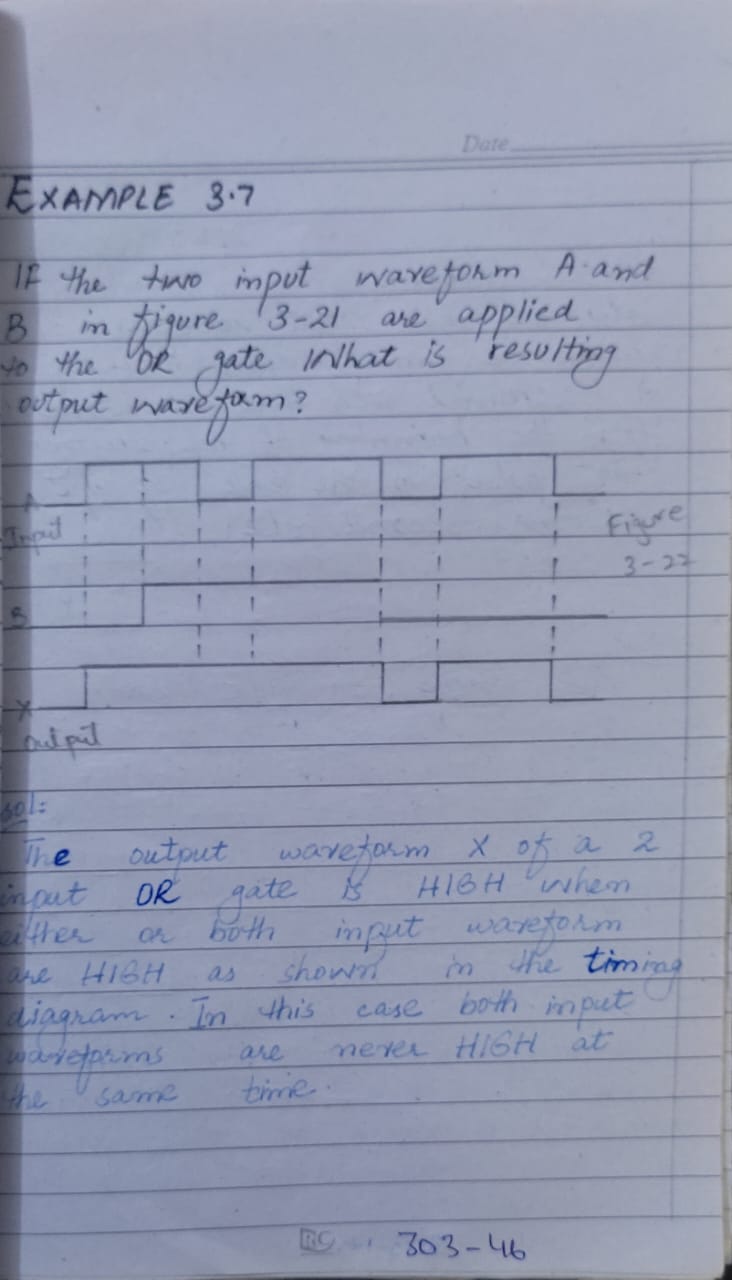 Date
EXAMPLE 3.7
IF the two input waveform A and
B in figure 3-21 are applied
to the OR gate What is resulting
output waveform?
A
Input
Figure
3-22
B
X
output
sol:
The output waveform X of a 2
input OR gate is HIGH when
either or both input waveform
are HIGH as shown in the timing
diagram. In this case both input
waveforms are never HIGH at
the same time.
RC
303-46